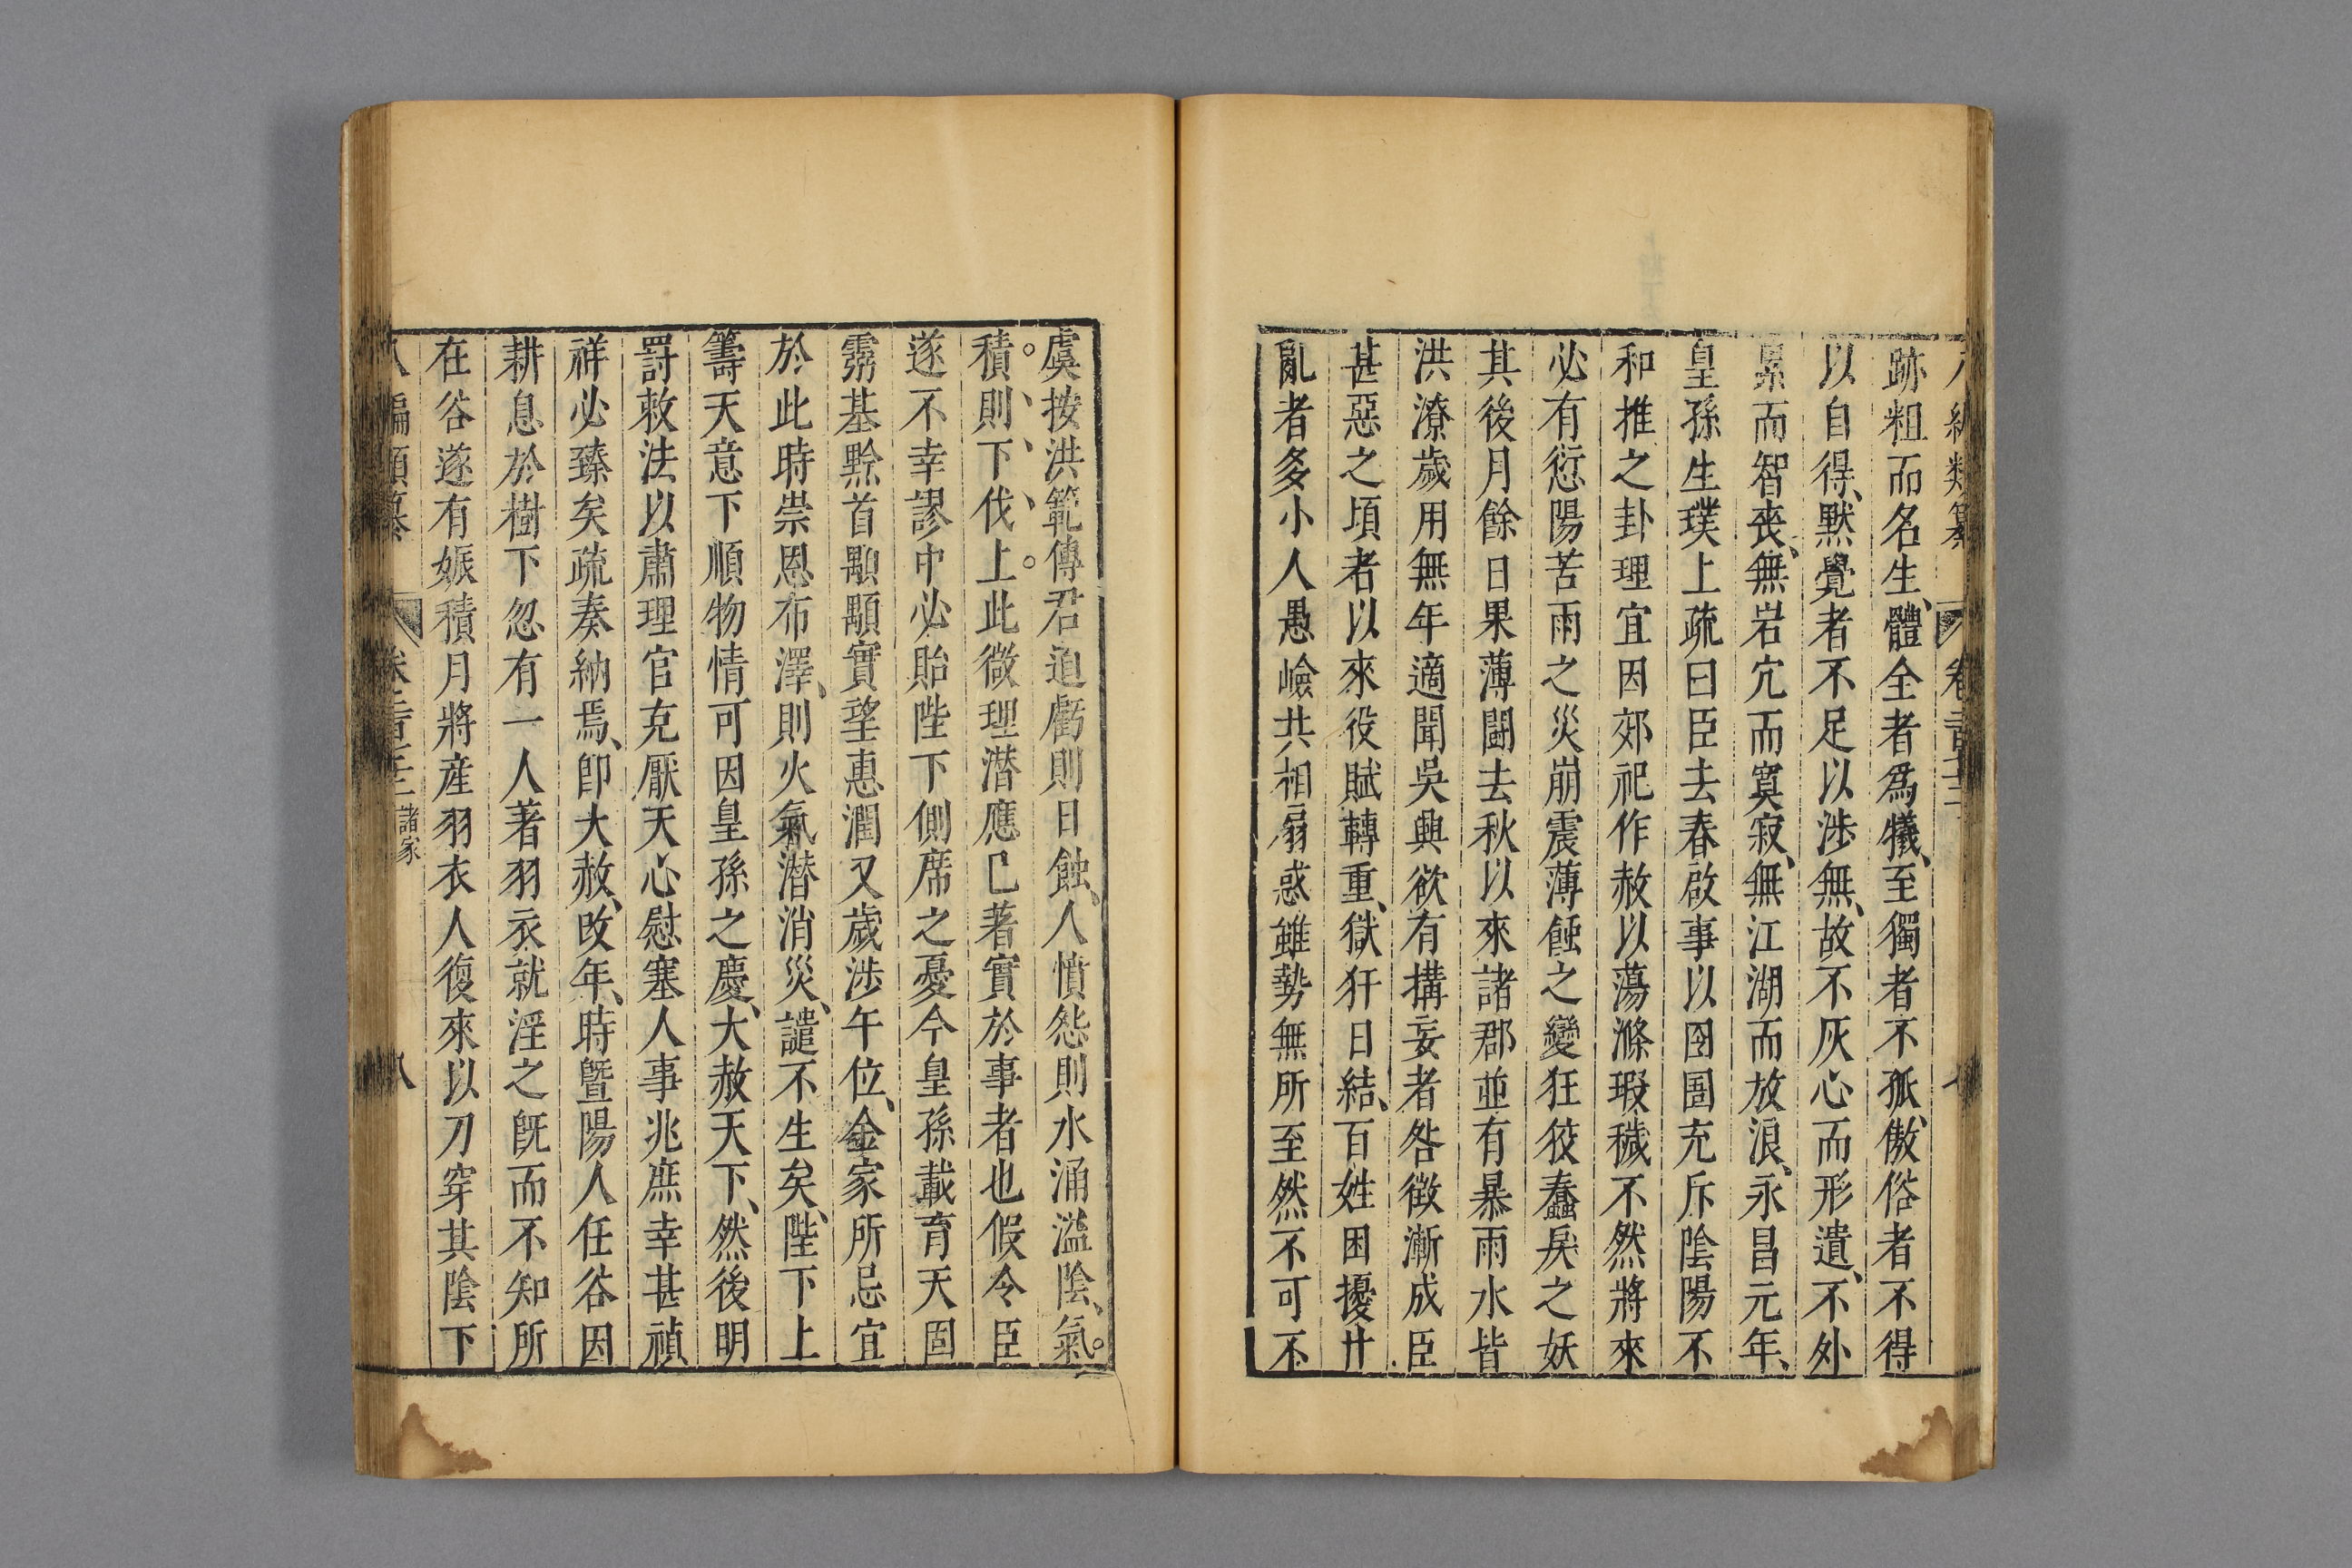 跡粗而名生、體全者爲犧、至獨者不孤、傲俗者不得
以自得、默覺者不足以涉無、故不灰心而形遺、不外
累而智喪、無岩穴而㝠寂、無江湖而放浪、永昌元年、
皇孫生璞上疏曰臣去春啟事以囹圄充斥陰陽不
和推之卦理宜因郊祀作赦以蕩滌瑕穢不然將來
必有愆陽苦雨之災崩震薄蝕之變狂狡蠢戾之妖
其後月餘日果薄鬬去秋以來諸郡並有暴雨水皆
洪潦歲用無年適聞吳興欲有搆妄者咎徵漸成臣
甚惡之頃者以來役賦轉重、獄犴日結、百姓困擾甘
亂者多小人愚嶮共相扇惑雖勢無所至然不可不
虞按洪範傳君道虧則日蝕、人憤怨則水涌溢陰、氣。
積則、下、伐、上。此微理潜應已著實於事者也假令臣
遂不幸謬中必貽陛下側席之憂今皇孫載育天固
靈基黔首顒顒實望惠潤又歲涉午位、金家所忌宜
於此時崇恩布澤、則火氣潜消災、譴不生矣、陛下上
籌天意下順物情可因皇孫之慶、大赦天下、然後明
罰敕法以肅理官克厭天心慰塞人事兆庶幸甚禎
祥必臻矣疏奏納焉、卽大赦、改年、時曁陽人任谷因
耕息於樹下忽有一人著羽衣就淫之旣而不知所
在谷遂有娠積月將産羽衣人復來以刀穿其陰下
諸家
八